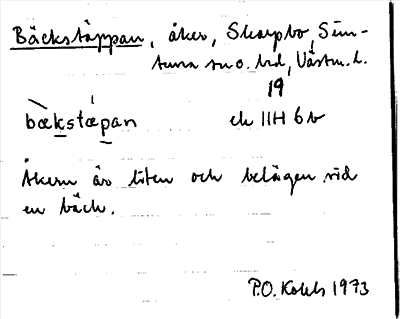 Bäckstäppan, åker, Skarpbo, Sim-
tuna sn o. hd, Västm. l.
19
bækstæpan ek 11H 6b
Åkern är liten och belägen vid
en bäck.
P.O. 1973